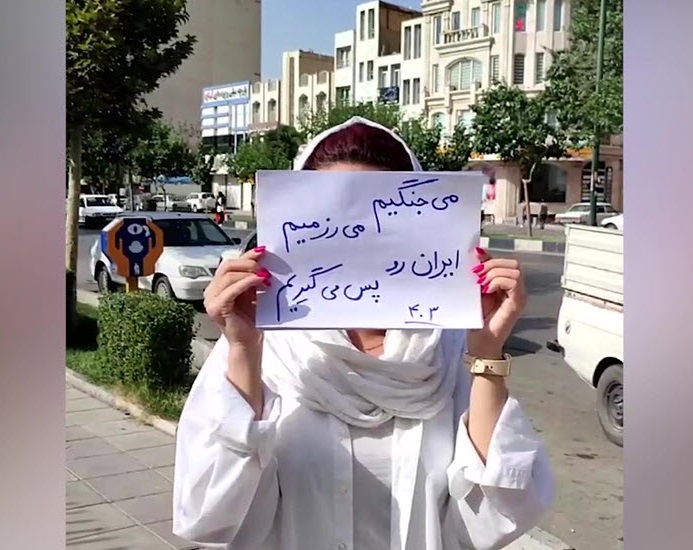 می جنگیم می رزمیم
ایران رو پس می گیریم
۴۰۳